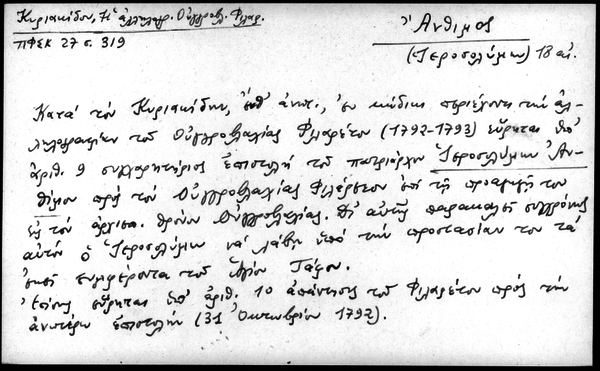 Κυριακίδου, Ἡ ἀλληλογρ. Οὑγγροβλ. Φιλαρ.
ΠΦΕΚ 27 σ. 319
Ἄνθιμος
(Ἱεροσολύμων) 18 αἰ.
Κατὰ τὸν Κυριακίδην, ἔνθ' ἀνωτ., ἐν κώδικι περιέχοντι τὴν ἀλ-
ληλογραφίαν τοῦ Οὑγγροβλαχίας Φιλαρέτου (1792-1793) εὕρηται ὑπ'
ἀριθ. 9 συγχαρητήριος ἐπιστολὴ τοῦ πατριάρχου Ἱεροσολύμων Ἀν-
θίμου πρὸς τὸν Οὑγγροβλαχίας Φιλάρετον ἐπὶ τῇ προαγωγῇ του
εἰς τὸν ἀρχιεπ. θρόνον Οὑγγροβλαχίας. Δι' αὐτῆς παρακαλεῖ συγχρόνως
αὐτὸν ὁ Ἱεροσολύμων νὰ λάβῃ ὑπὸ τὴν προστασίαν του τὰ
ἐκεῖ συμφέροντα τοῦ Ἁγίου Τάφου.
Ἐπίσης εὕρηται ὑπ' ἀριθ. 10 ἀπάντησις τοῦ Φιλαρέτου πρὸς τὴν
ἀνωτέρω ἐπιστολὴν (31 Ὀκτωβρίου 1792).